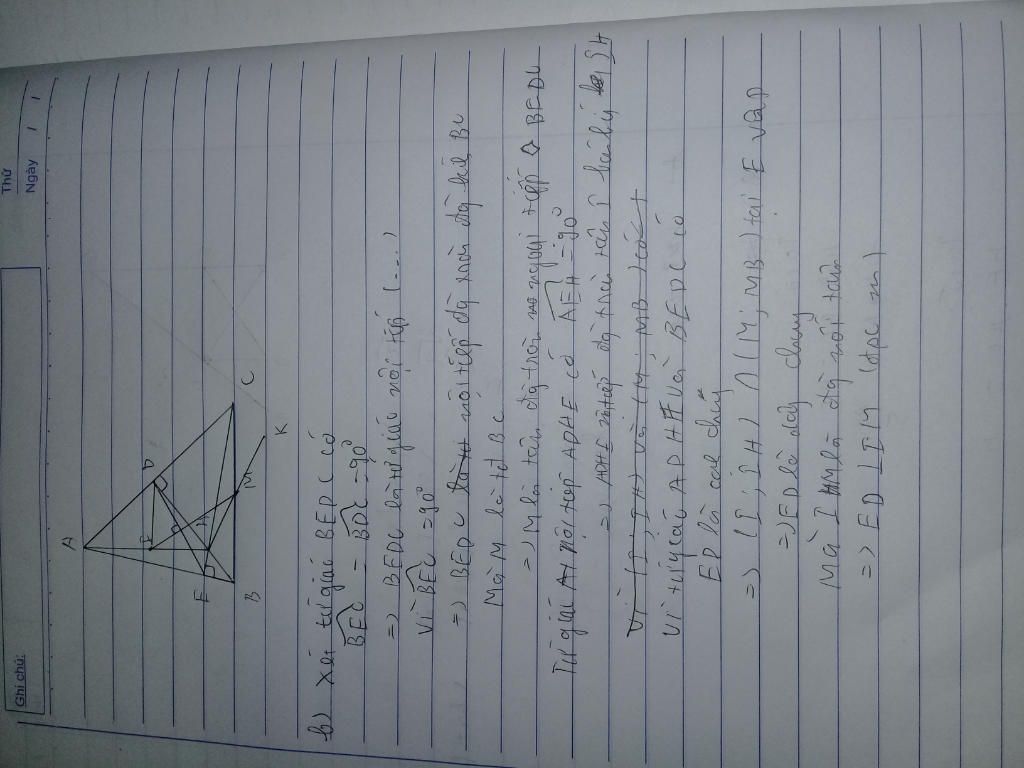 Ghi chú:
Thứ
Ngày / /
A
D
I
E
H
B
M
C
K
b) Xét tứ giác BEDC có
BEC = BDC = 90°
=> BEDC là tứ giác nội tiếp (...)
Vì BEC = 90°
=> BEDC nội tiếp đg tròn đg kính BC
Mà M là tđ BC
=> M là tâm đg tròn ngoại tiếp BEDC
Tứ giác nội tiếp ADHE có AEH = 90°
=> ADHE nội tiếp đg tròn tâm I bán kính IH
Vì (I; IH) và (M; MB) có
Vì tứ giác ADHE và BEDC có
ED là cạnh chung
=> (I; IH) ∩ (M; MB) tại E và D
=> ED là dây chung
Mà IM là đg nối tâm
=> ED ⊥ IM (đpcm)